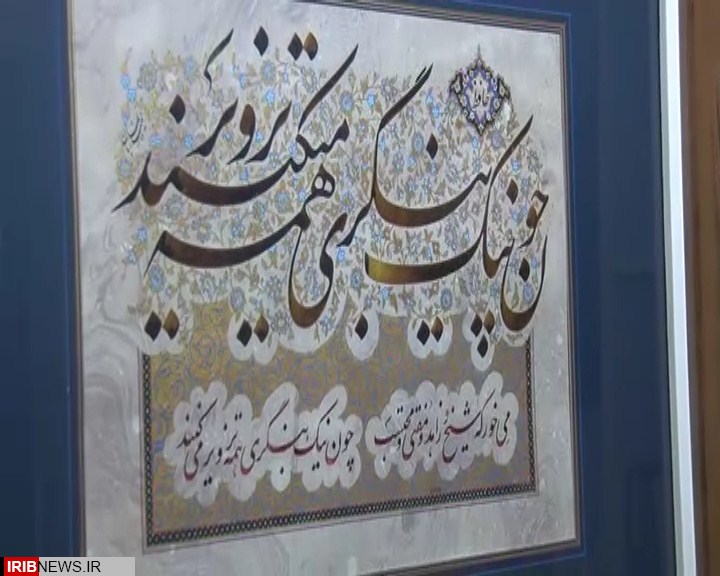 حافظ
چون نیک بنگری همه تزویر میکنند
می خور که شیخ زاهد و مفتی و محتسب
چون نیک بنگری همه تزویر می کنند
IRIBNEWS.IR